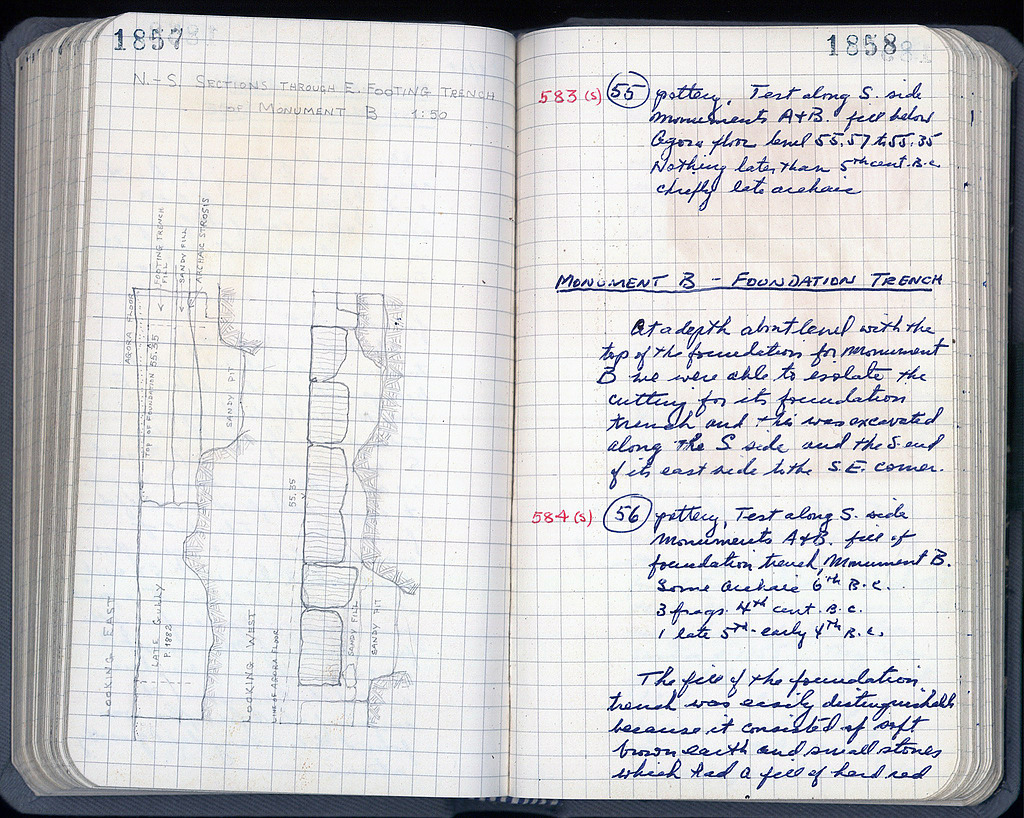 1857
N.-S. SECTIONS THROUGH E. FOOTING TRENCH
OF MONUMENT B 1:50
AGORA FLOOR
TOP OF FOUNDATION 55.35
FOOTING TRENCH
FILL
SANDY FILL
ARCHAIC STROSIS
SANDY PIT
LATE GULLY
P. 1882
LOOKING EAST
LOOKING WEST
LINE OF AGORA FLOOR
55.35
SANDY FILL
SANDY PIT
1858
583 (s) 55 pottery, Test along S. side
Monuments A+B. fill below
Agora floor level 55.57 to 55.35
Nothing later than 5th cent. B.C.
chiefly late archaic
MONUMENT B - FOUNDATION TRENCH
At a depth about level with the
top of the foundation for Monument
B we were able to isolate the
cutting for its foundation
trench and this was excavated
along the S side and the S. end
of its east side to the S.E. corner.
584 (s) 56 pottery, Test along S. side
Monuments A+B. fill of
foundation trench, Monument B.
Some Archaic 6th B.C.
3 frags. 4th cent. B.C.
1 late 5th - early 4th B.C.
The fill of the foundation
trench was easily distinguishable
because it consisted of soft
brown earth and small stones
which had a fill of hard red